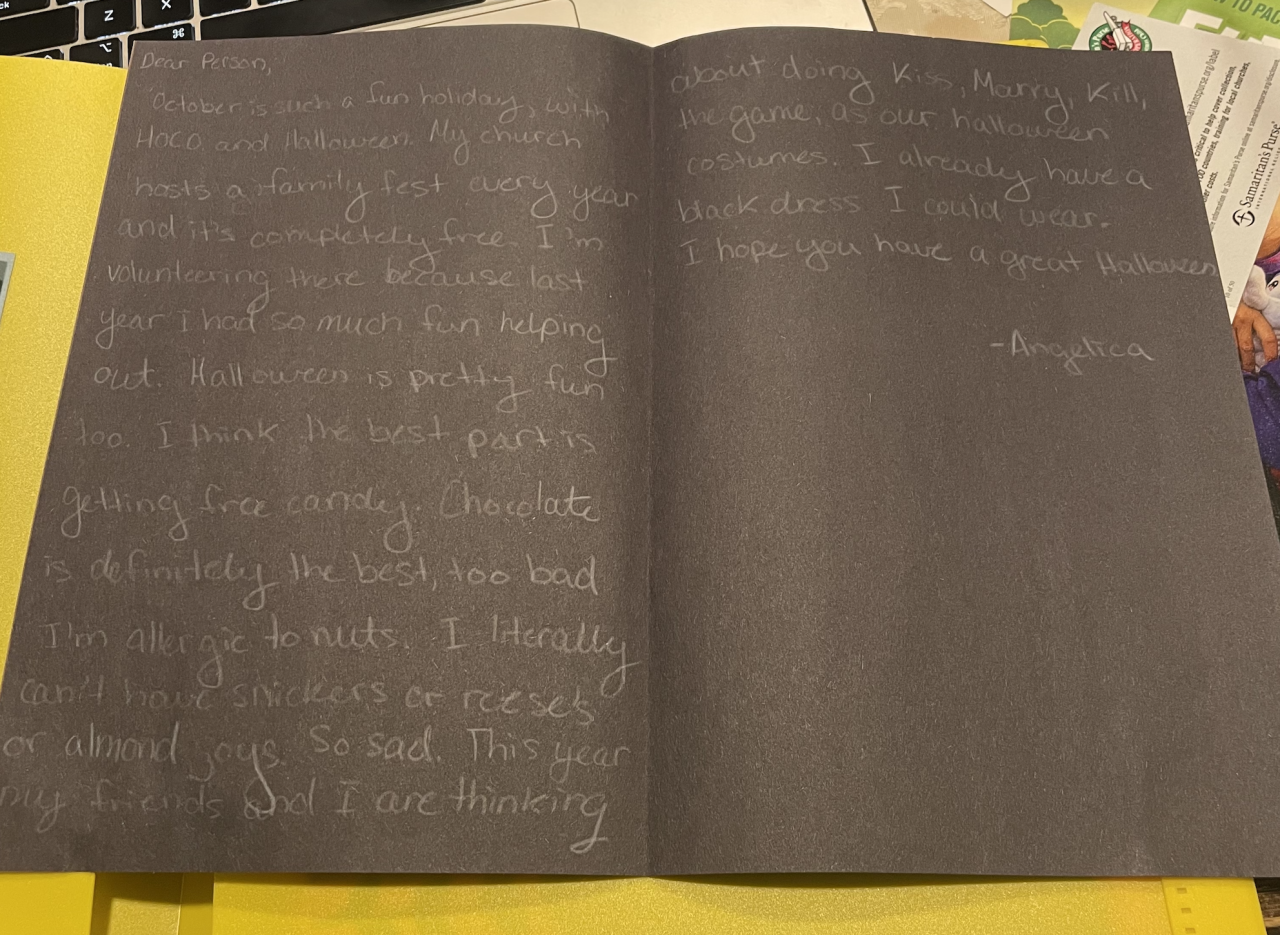 Dear Person,
October is such a fun holiday, with
HOCO and Halloween. My church
hosts a family fest every year
and it's completely free. I'm
volunteering there because last
year I had so much fun helping
out. Halloween is pretty fun
too. I think the best part is
getting free candy. Chocolate
is definitely the best, too bad
I'm allergic to nuts. I literally
can't have snickers or reese's
or almond joys. So sad. This year
my friends and I are thinking
about doing Kiss, Marry, Kill,
the game, as our halloween
costumes. I already have a
black dress I could wear.
I hope you have a great Halloween
-Angelica
Z
X
⌘
⌥
TO PAC
Samaritan's Purse
critical to help cover collection,
countries, training for local churches,